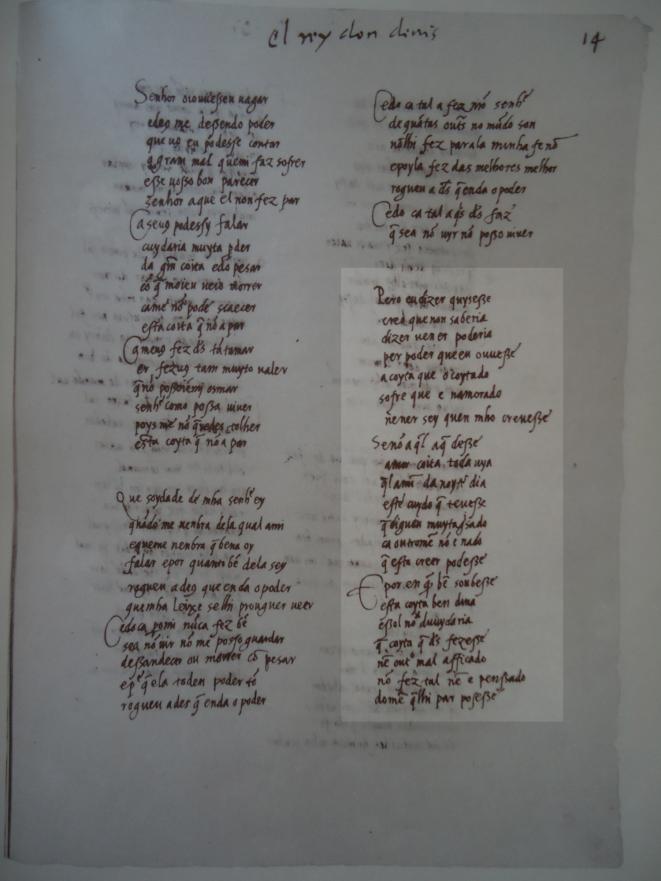 el rey don denis
14
Senhor oiouuessen nagar
edeꝯ me dessendo poder
que uꝯ eu podesse contar
q̄ gram mal quemi faz sofrer
esse uosso bon parecer
Senhor a que el non fez par
Ca seuꝯ podessy falar
cuydaria muyta pder
da grm̄ coita edo pesar
cō q̄ moieu uēio morrer
ca me nō pode scaecer
esta coita q̄ nō a par
Ca meuꝯ fez ds̄ tā tamar
er fezuꝯ tam muyto ualer
q̄ nō posseu my osmar
senhr̄ como possa uiuer
poys me nō q̄redes tolher
esta coyta q̄ nō a par
Que soydade de mha senhr̄ ey
quādo me nenbra dela qual a mi
e que me nenbra q̄ ben a oy
falar e por quanto bē dela sey
rogueu a deꝯ que end a o poder
que mha leixe se lhi prouguer ueer
Cedo ca pomi nūca fez bē
sea nō uir nō me posso guardar
dessandecer ou morrer cō pesar
e pr̄ q̄ ela toden poder tē
rogueu a deꝯ q̄ end a o poder
Cedo ca tal a fez nr̄o senhr̄
de quātas outs̄ no mūdo son
nōlhi fez par a la minha fe nō
e poy la fez das melhores melhor
rogueu a ds̄ q̄ end a o poder
Cedo ca tal a q̄s ds̄ faz
q̄ sea nō uyr nō posso uiuer
Pero eu dizer quysesse
creo que non saberia
dizer nen er poderia
per poder que eu ouuesse
a coyta que o coytado
sofre que e namorado
nē ner sey quen mho creuesse
Se nō a ql̄ a q̄ desse
amor coita toda uya
ql̄ a mī da noyte dia
este cuydo q̄ teuesse
q̄ digueu muyt agsado
ca outrome nō e nado
q̄ esta creer podesse
E por en q̄ bē soubesse
esta coyta ben diria
e sol nō duuydaria
q̄ coyta q̄ ds̄ fezesse
nē outo mal afficado
nō fez tal nē e penssado
dome q̄ lhi par posesse